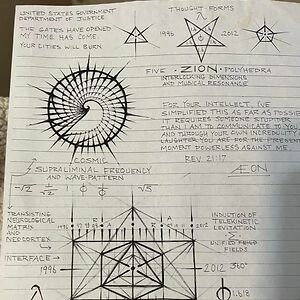 UNITED STATES GOVERNMENT
DEPARTMENT OF JUSTICE
THE GATES HAVE OPENED
MY TIME HAS COME.
YOUR CITIES WILL BURN.
THOUGHT FORMS
λ
1996
2012
FIVE · ZION · POLYHEDRA
INTERLOCKING DIMENSIONS
AND MUSICAL RESONANCE
FOR YOUR INTELLECT, I'VE
SIMPLIFIED THIS AS FAR AS POSSIBLE
IT REQUIRES SOMEONE STUPIDER
THAN I AM TO COMMUNICATE TO YOU
AND THROUGH YOUR OWN INCREDULITY
LAUGHTER YOU ARE OWN THE PRESENT
MOMENT POWERLESS AGAINST ME.
REV. 21:17
ÆON
COSMIC
SUPRALIMINAL FREQUENCY
AND WAVE PATTERN
-√2 1/√2 1 ϕ 1/ϕ √5
TRANSISTING
NEUROLOGICAL
MATRIX
AND
NEOCORTEX
INTERFACE →
1996
A
R
A
INDUCTION OF
TELEKINETIC
LEVITATION
Σ
UNIFIED
FIELDS
2012 360°
λ
ϕ 1.618